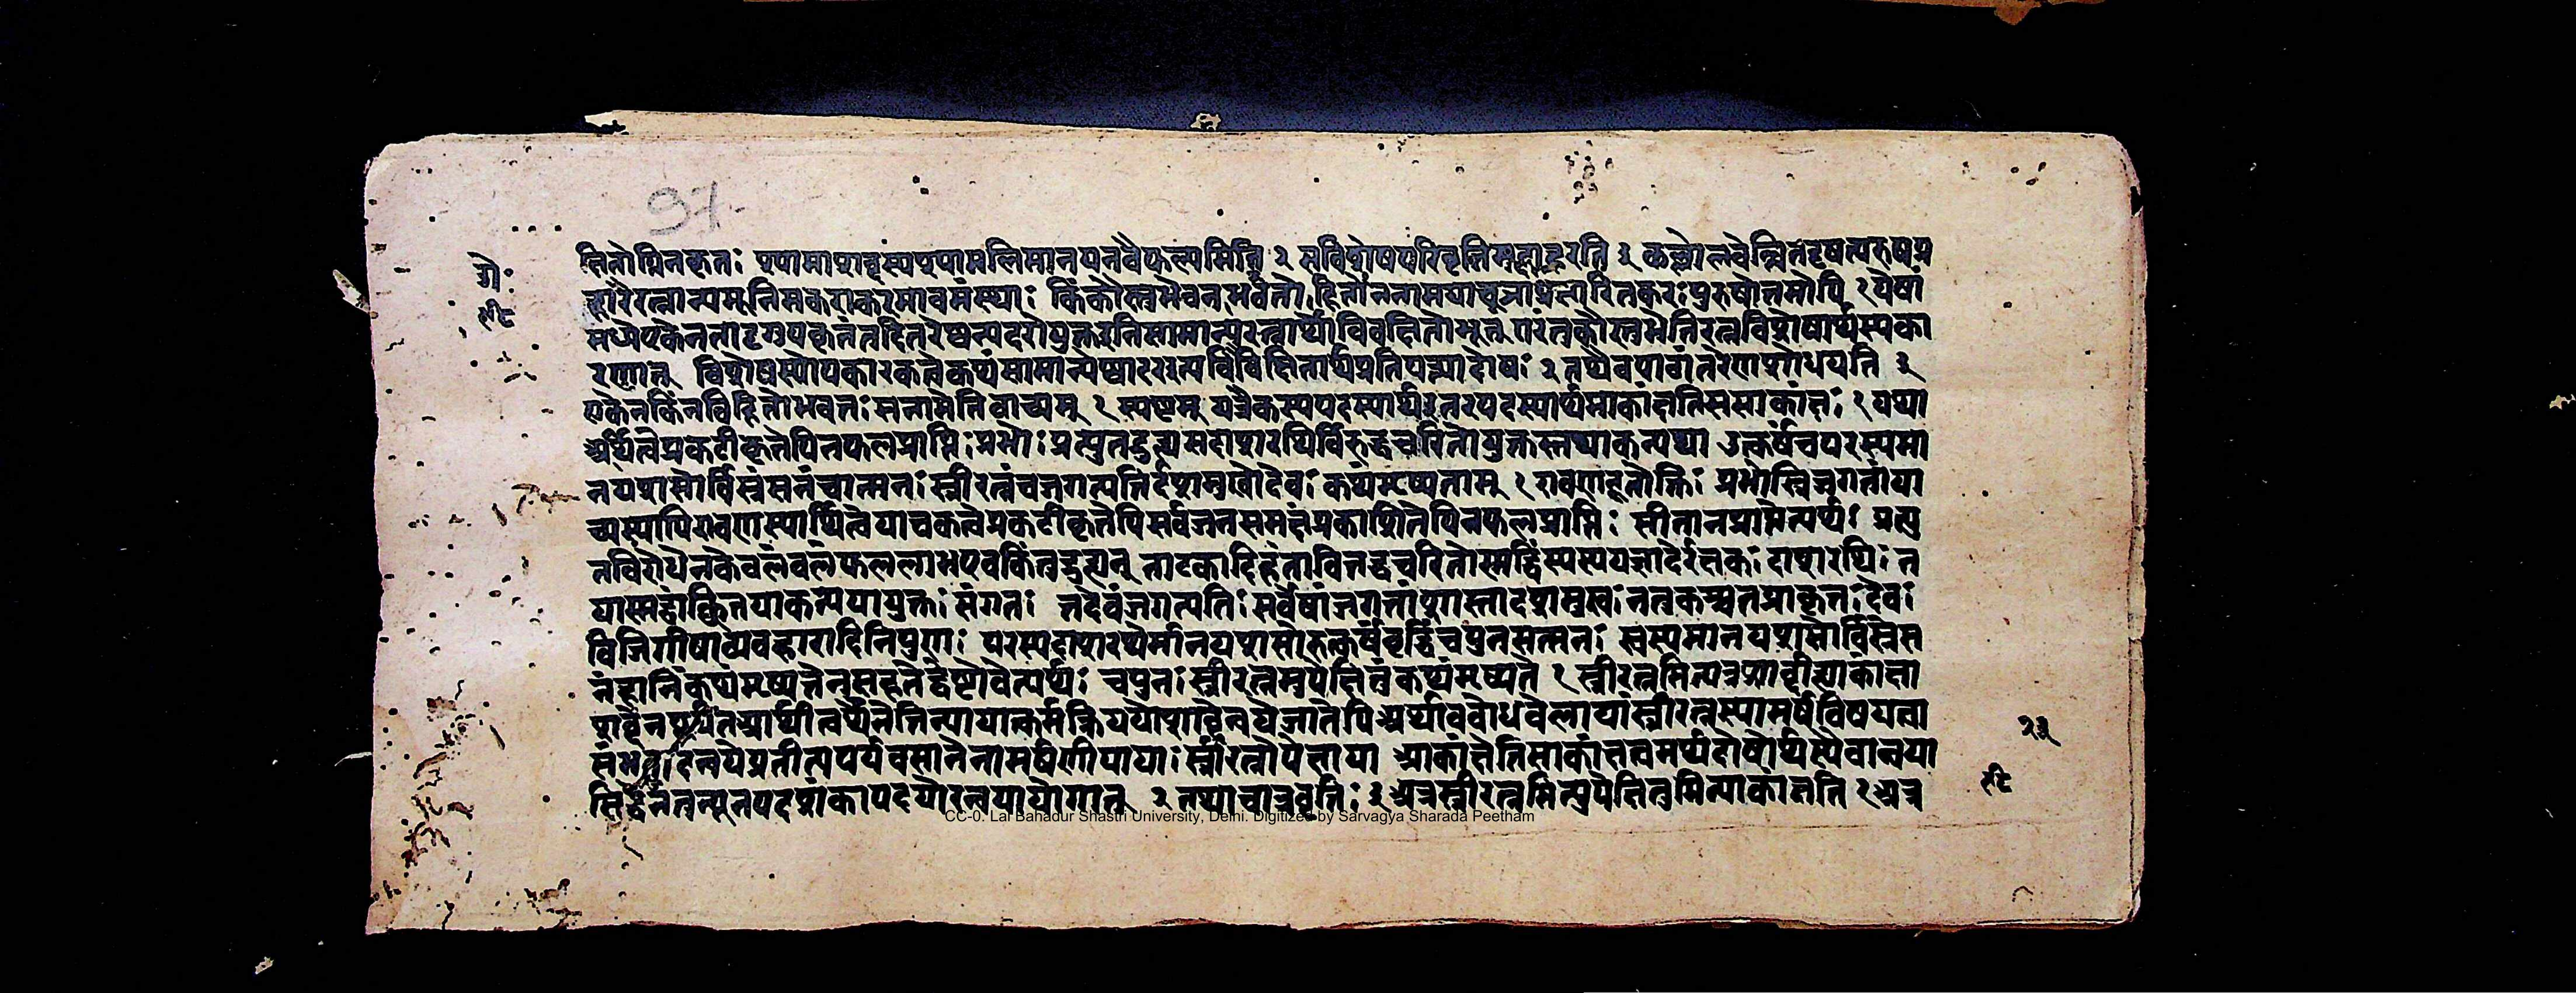 97-
गे॰
टी
क्षितोग्निनकृतः श्यामाशब्दस्यश्यामलिमानयनवैफल्यमिति २ सविशेषपरिवृत्तिमुदाहरति ३ कल्लोलवेल्लितदृषत्परुषप्र
हारैरत्नान्यमूनिमकराकरमावमंस्थाः किंकौस्तुभेनभवतो विहितोननामयाच्ञाप्रसारितकरःपुरुषोत्तमोपि १ एषां
मध्येएकेनतादृगुपकृतंतदितरेष्वप्यादरोयुक्तइतिसामान्यरत्नार्थोविवक्षितोभूत् परंतुकौस्तुभेतिरत्नविशेषार्थस्यका
रणात् विशेषस्योपकारकत्वेकथंसामान्येष्वादरइत्यविवक्षितार्थप्रतिपत्त्यादोषः २ तथैवपाठांतरेणशोधयति ३
एकेनकिंनविहितोभवतःसनामेतिवाच्यम् १ स्पष्टम् यत्रैकस्यपदस्यार्थइतरपदस्यार्थमाकांक्षतिससाकांक्षः १ यथा
अर्थित्वेप्रकटीकृतेपिनफलप्राप्तिःप्रभोः प्रत्युतद्रुह्यन्दाशरथिर्विरुद्धचरितोयुक्तस्तयाकन्यया उत्कर्षंचपरस्यमा
नयशसोर्विस्रंसनंचात्मनः स्त्रीरत्नंचजगत्पतिर्दशमुखोदेवः कथंमृष्यताम् १ रावणदूतोक्तिः प्रभोस्त्रिजगतांया
च्यस्यापिरावणस्यार्थित्वेयाचकत्वेप्रकटीकृतेपिसर्वजनसमक्षंप्रकाशितेपिनफलप्राप्तिः सीतानप्राप्तेत्यर्थः प्रत्यु
तविरोधेनकेवलंबलंफललाभएवकिंतुद्रुह्यन् ताटकादिहंताविरुद्धचरितोस्मद्धिंस्यस्ययज्ञादेरक्षकः दाशरथिः त
यास्मद्वांछितयाकन्ययायुक्तः संगतः तदेवंजगत्पतिः सर्वेषांजगतांशास्तादशमुखः नत्वकश्चनप्राकृतः देवः
विजिगीषाव्यवहारादिनिपुणः परस्यदाशरथेर्मानयशसोरुत्कर्षवृद्धिंचपुनरात्मनः स्वस्यमानयशसोर्विस्रंस
नंहानिंकथंमृष्यतेनसहतेद्वेष्टावेत्यर्थः चपुनः स्त्रीरत्नमुपेक्षितुंकथंमृष्यते १ स्त्रीरत्नमित्यत्रशाब्दीह्याकांक्षा
शब्देनपूर्यतेआर्थीत्वर्थेनेतिन्यायात्कर्मक्रिययोःशाब्देन्वयेजातेपिअर्थावबोधवेलायांस्त्रीरत्नस्यामर्षविषयत्वा
संभवादन्वयेप्रतीत्यपर्यवसानेनामर्षणीयायाः स्त्रीरत्नोपेक्षाया आकांक्षेतिसाकांक्षत्वमर्थदोषोर्थस्यैवान्वया
सिद्धेर्नतन्यूनपदशंकापदयोरन्वयायोगात् २ तथाचात्रवृत्तिः ३ अत्रस्त्रीरत्नमित्युपेक्षितुमित्याकांक्षति १ अत्र
२३
टी
CC-0. Lal Bahadur Shastri University, Delhi. Digitized by Sarvagya Sharada Peetham